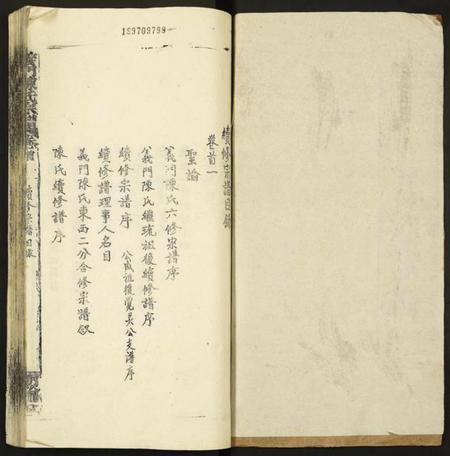 159709799
續修宗譜目錄
卷首一
聖諭
義門陳氏六修宗譜序
義門陳氏繼琉祖後續修譜序
續修宗譜序
公成祖後覺吴公支譜序
續修譜理事人名目
義門陳氏東西二分合修宗譜敘
陳氏續修譜序
續修宗譜目錄